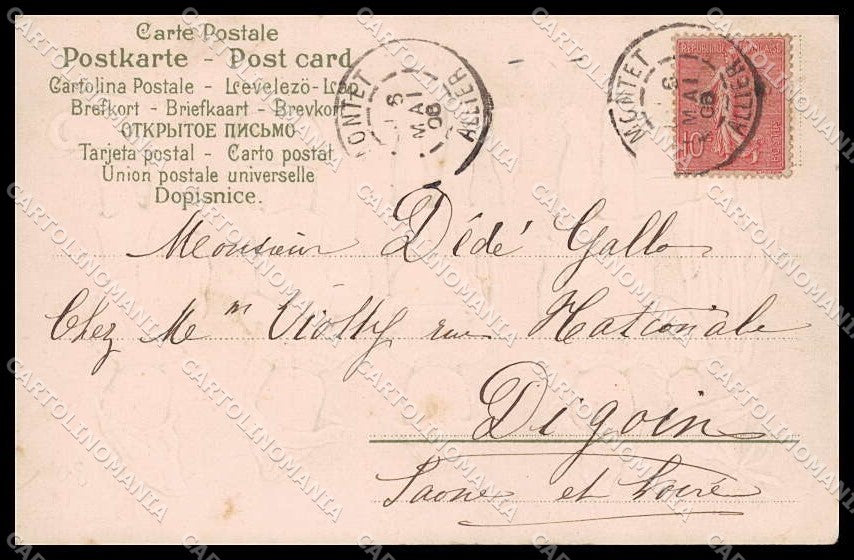 Carte Postale
Postkarte - Post card
Cartolina Postale - Levelező-La
Brefkort - Briefkaart - Brevkort
ОТКРЫТОЕ ПИСЬМО
Tarjeta postal - Carto postal
Union postale universelle
Dopisnice.
MONTET
6
MAI
06
ALLIER
MONTET
6
MAI
06
ALLIER
RÉPUBLIQUE FRANÇAISE
10
Monsieur Dédé Gallo
Chez Me m Violty rue Nationale
Digoin
Saone et Loire
CARTOLINOMANIA